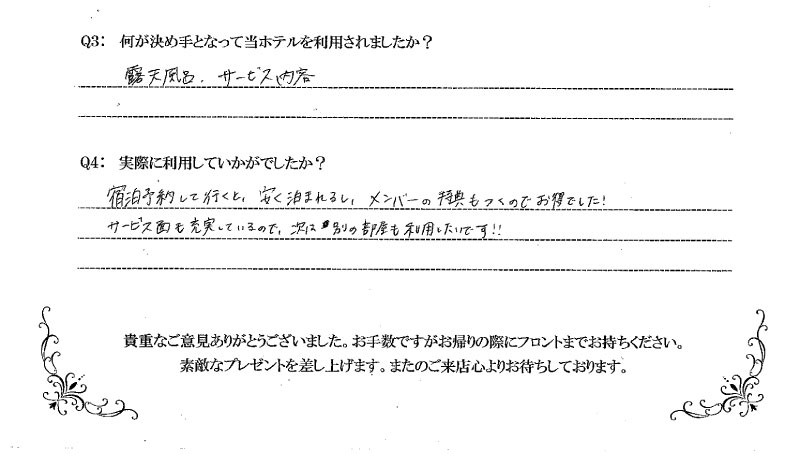 Q3： 何が決め手となって当ホテルを利用されましたか？
露天風呂、サービス内容
Q4： 実際に利用していかがでしたか？
宿泊予約して行くと、安く泊まれるし、メンバーの特典もつくのでお得でした!
サービス面も充実しているので、次は別の部屋も利用したいです!!
貴重なご意見ありがとうございました。お手数ですがお帰りの際にフロントまでお持ちください。
素敵なプレゼントを差し上げます。またのご来店心よりお待ちしております。